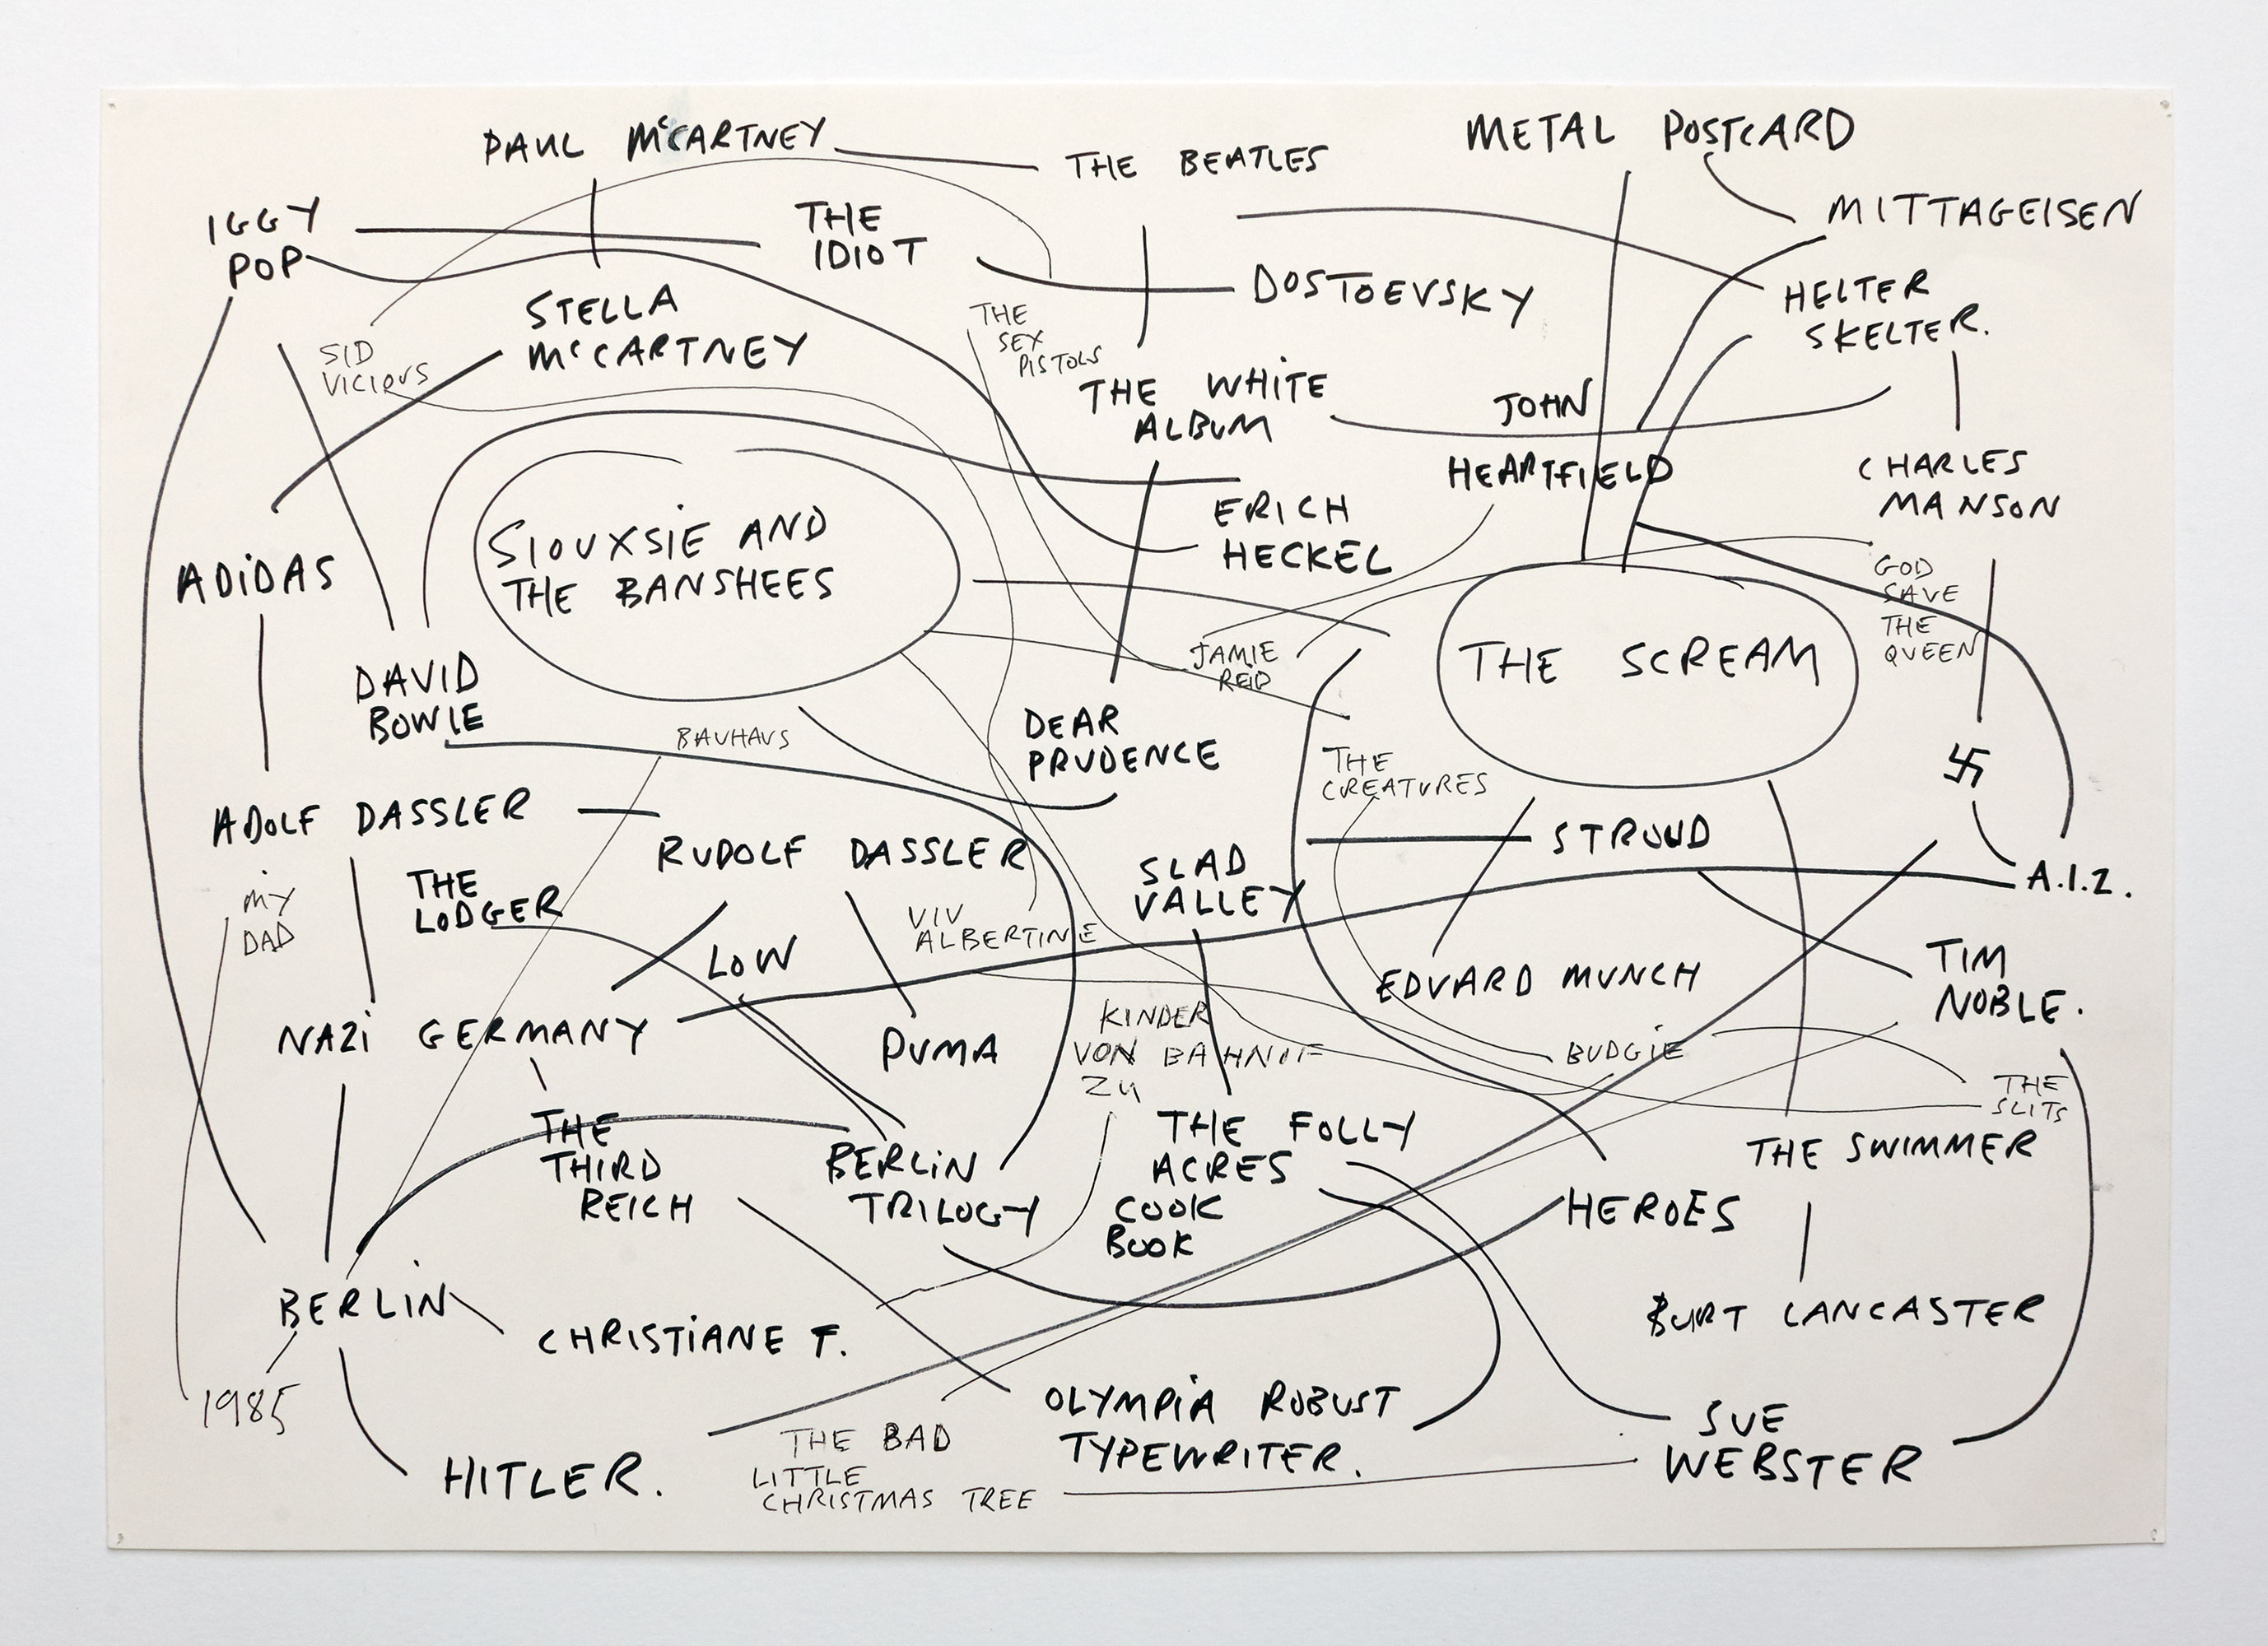 PAUL McCARTNEY
THE BEATLES
METAL POSTCARD
MITTAGEISEN
IGGY
POP
THE
IDIOT
DOSTOEVSKY
HELTER
SKELTER.
STELLA
McCARTNEY
SID
VICIOUS
THE
SEX
PISTOLS
THE WHITE
ALBUM
JOHN
HEARTFIELD
CHARLES
MANSON
SIOUXSIE AND
THE BANSHEES
ERICH
HECKEL
ADIDAS
GOD
SAVE
THE
QUEEN
THE SCREAM
JAMIE
REID
DAVID
BOWIE
BAUHAUS
DEAR
PRUDENCE
THE
CREATURES
卐
ADOLF DASSLER
RUDOLF DASSLER
STROUD
SLAD
VALLEY
A.I.Z.
MY
DAD
THE
LODGER
VIV
ALBERTINE
LOW
EDVARD MUNCH
TIM
NOBLE.
NAZI GERMANY
PUMA
KINDER
VON BAHNHOF
ZU
BUDGIE
THE
SLITS
THE
THIRD
REICH
BERLIN
TRILOGY
THE FOLLY
ACRES
COOK
BOOK
THE SWIMMER
HEROES
BERLIN
CHRISTIANE F.
BURT LANCASTER
1985
HITLER.
THE BAD
LITTLE
CHRISTMAS TREE
OLYMPIA ROBUST
TYPEWRITER.
SUE
WEBSTER